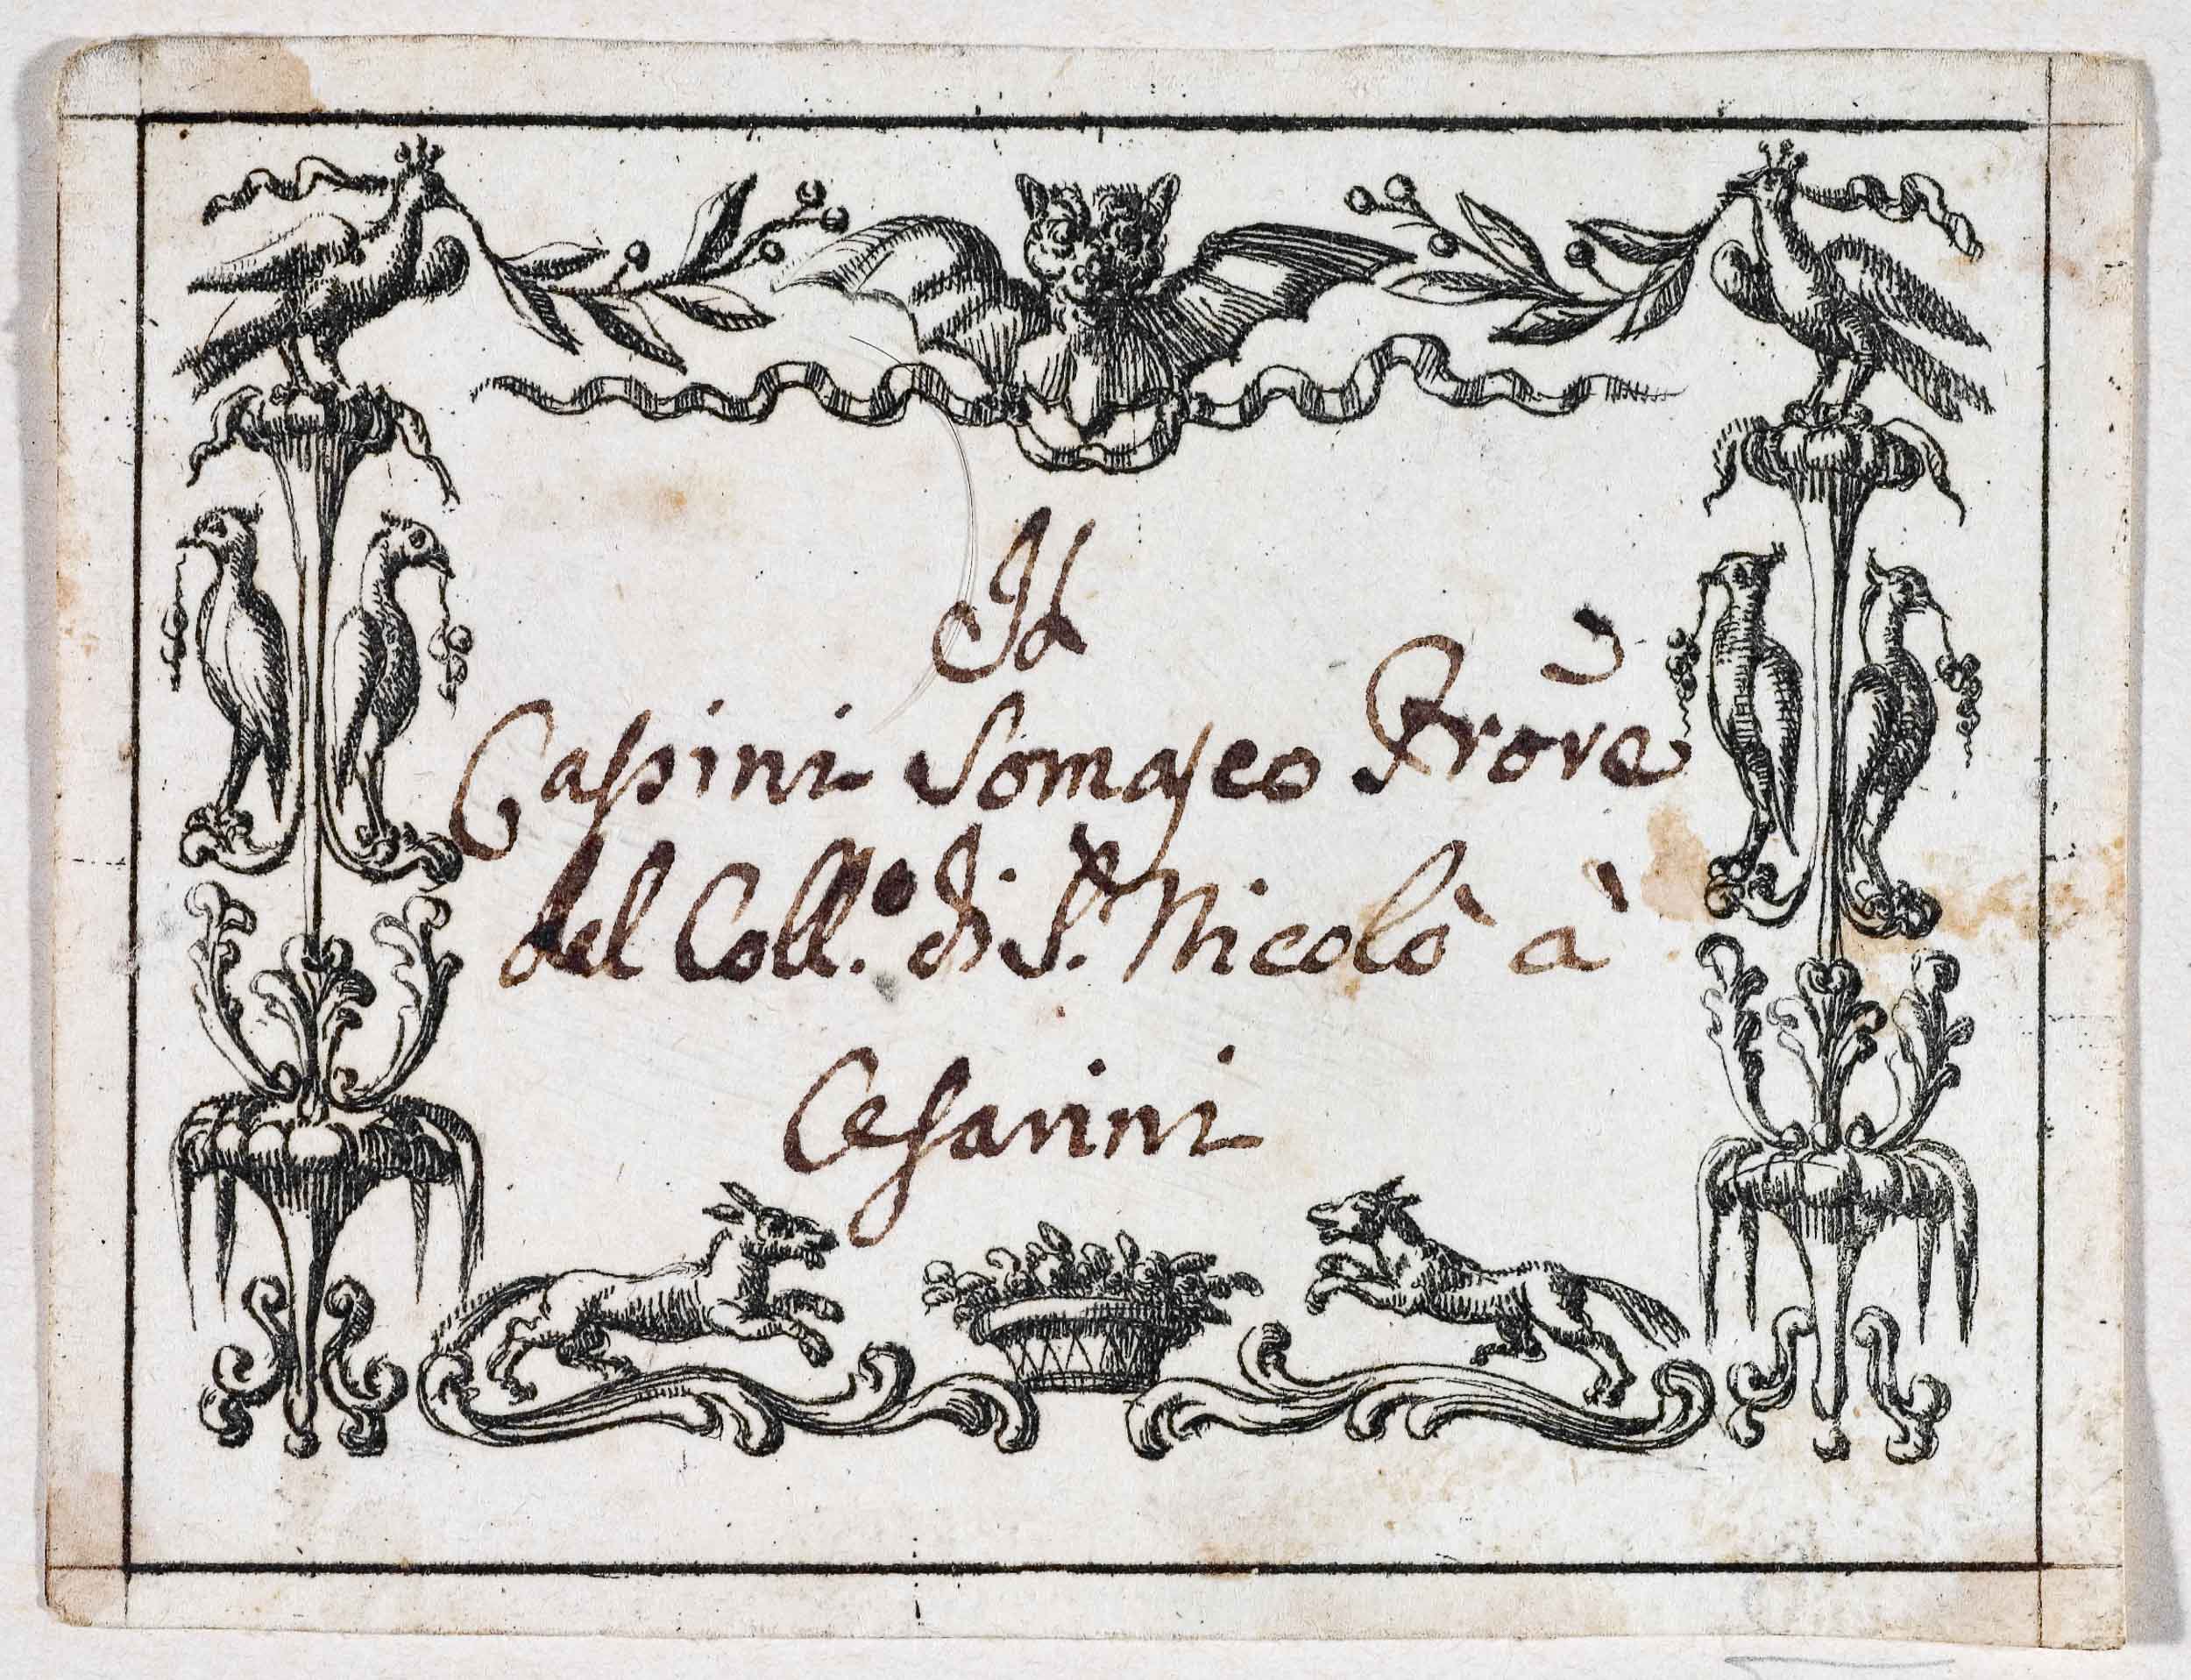 Il
Cassini Somasco Prore
del Coll.o di S.n Nicolò à
Cesarini